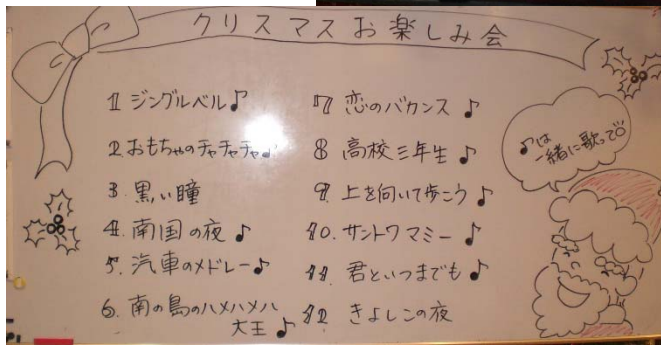 クリスマスお楽しみ会
1 ジングルベル♪
2. おもちゃのチャチャチャ♪
3. 黒い瞳
4. 南国の夜♪
5. 汽車のメドレー♪
6. 南の島のハメハメハ
大王♪
7 恋のバカンス♪
8 高校三年生♪
9. 上を向いて歩こう♪
10. サントワマミー♪
11. 君といつまでも♪
12 きよしこの夜
♪は
一緒に歌って♡